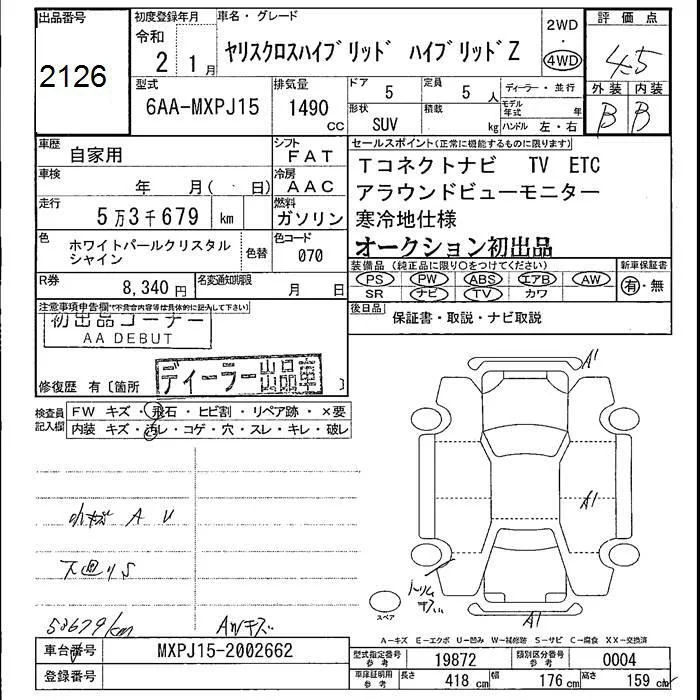 出品番号
2126
初度登録年月
令和
2 1月
車名・グレード
ヤリスクロスハイブリッド ハイブリッドZ
2WD
・
4WD
評価点
4.5
型式
6AA-MXPJ15
排気量
1490
CC
ドア
5
定員
5人
ディーラー・並行
形状
SUV
積載
kg
モデル年式
年
ハンドル 左・右
外装 内装
B B
車歴
自家用
シフト
FAT
車検
年 月( 日)
冷房
AAC
走行
5万3千679 km
燃料
ガソリン
色
ホワイトパールクリスタル
シャイン
色替
色コード
070
R券
8,340円
名変通知期限
月 日
セールスポイント(正常に機能するものに限ります)
Tコネクトナビ TV ETC
アラウンドビューモニター
寒冷地仕様
オークション初出品
装備品(純正品に限り○をつけてください)
PS PW ABS エアB AW
SR ナビ TV カワ
新車保証書
有・無
後日品
保証書・取説・ナビ取説
注意事項申告欄(不具合内容等は具体的に記入して下さい)
初出品コーナー
AA DEBUT
修復歴 有〔箇所 〕
ディーラー出品車
検査員
記入欄
FW キズ・飛石・ヒビ割・リペア跡・×要
内装 キズ・汚レ・コゲ・穴・スレ・キレ・破レ
小キズ A U
下廻りS
53679km
AWキズ
A1
A1
A1
トリム
キズ
スペア
A-キズ E-エクボ U-凹み W-補修跡 S-サビ C-腐食 XX-交換済
車台番号
MXPJ15-2002662
登録番号
型式指定番号
参考
19872
類別区分番号
参考
0004
車庫証明用
参考
長さ
418 cm
幅
176 cm
高さ
159 cm